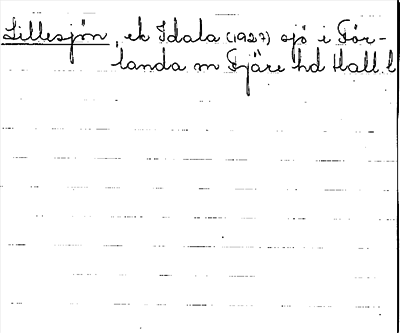 Lillesjön, ek Idala (1927) sjö i För-
landa m Fjäre hd Hall l